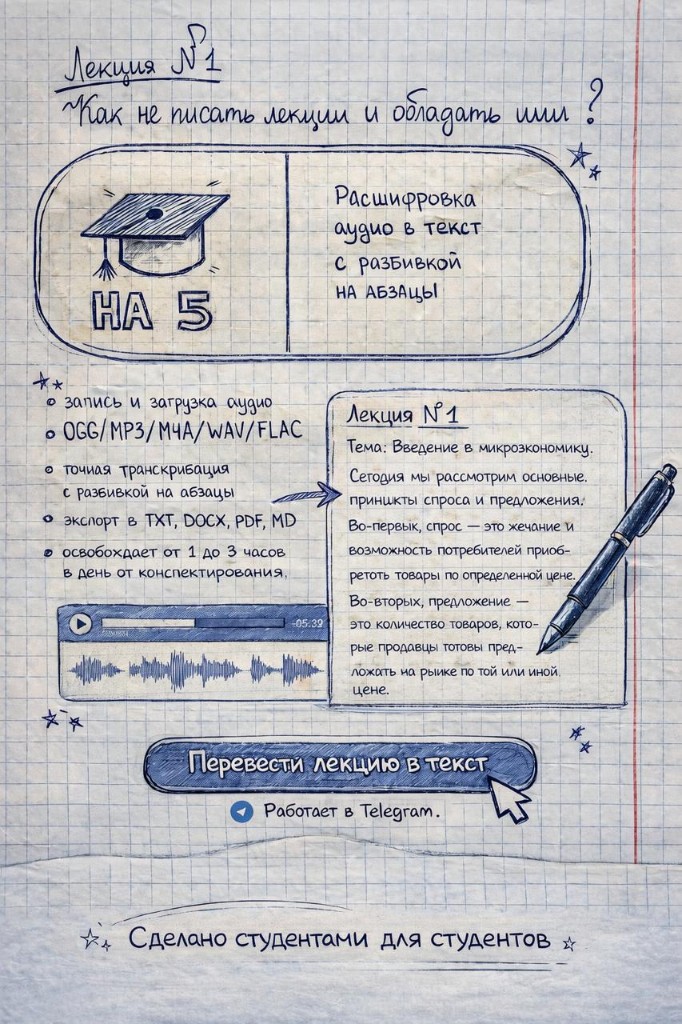 Лекция №1
Как не писать лекции и обладать ими?
НА 5
Расшифровка
аудио в текст
с разбивкой
на абзацы
запись и загрузка аудио
OGG/MP3/M4A/WAV/FLAC
точная транскрибация
с разбивкой на абзацы
экспорт в TXT, DOCX, PDF, MD
освобохдает от 1 до 3 часов
в день от конспектирования.
-05:39
Лекция №1
Тема: Введение в микроэкономику.
Сегодня мы рассмотрим основные.
приникты спроса и предложения.
Во-первык, спрос — это жечание и
возможность потребителей приоб-
ретоть товары по определенной цене.
Во-вторых, предложение —
это количество товаров, кото-
рые продавцы тотовы пред-
ложать на рыике по той или иной
цене.
Перевести лекцию в текст
Работает в Telegram.
Сделано студентами для студентов